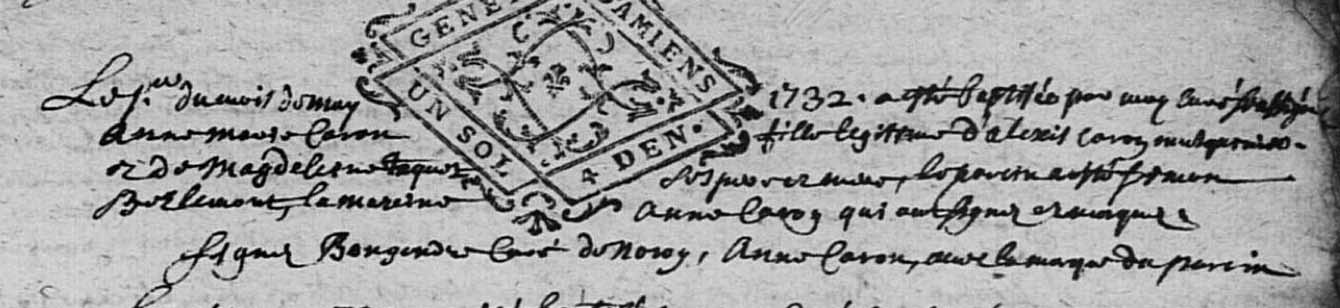 GENE DAMIENS
UN SOL 4 DEN.
Le 1.er du mois de may 1732. a esté baptisée par moy curé soussigné
Anne marie Caron fille legitime d'alexis Caron musquinier
et de Magdeleine ses pere et mere, le parein a esté simon
Berlemont, la mareine Anne Caron qui ont signez et marquez
signez Bongendre Curé de noroy, Anne Caron, avec la marque du parein